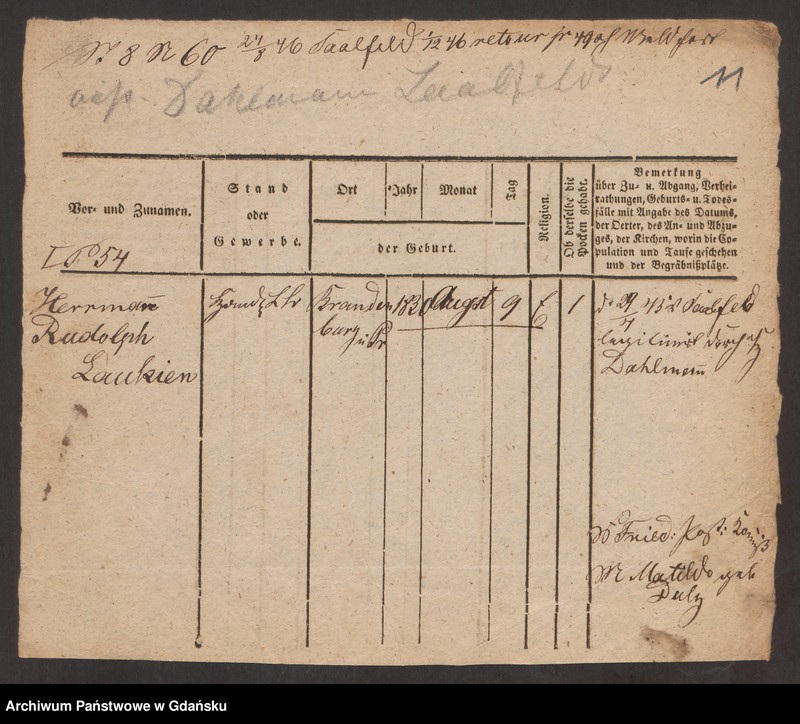 No 8 N 60 24/8 46 Saalfeld 1/12 46 retour
Dahlmann Saalfeld
11
Vor- und Zunamen.
Stand
oder
Gewerbe.
Ort
Jahr
Monat
Tag
der Geburt.
Religion.
Ob derselbe die
Pocken gehabt.
Bemerkung
über Zu- u. Abgang, Verhei-
rathungen, Geburts- u. Todes-
fälle mit Angabe des Datums,
der Oerter, des An- und Abzu-
ges, der Kirchen, worin die Co-
pulation und Taufe geschehen
und der Begräbnißplätze.
I P 54
Herrmann
Rudolph
Laukien
Branden
burg
Augst
9
E
1
Saalfeld
legitimirt durch
Dahlmann
V Fried: Post:
M Matilde geb
Archiwum Państwowe w Gdańsku